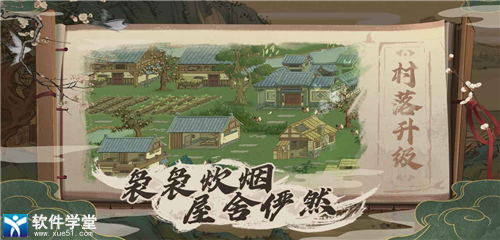 村落升级
袅袅炊烟
屋舍俨然
软件学堂
www.xue51.com